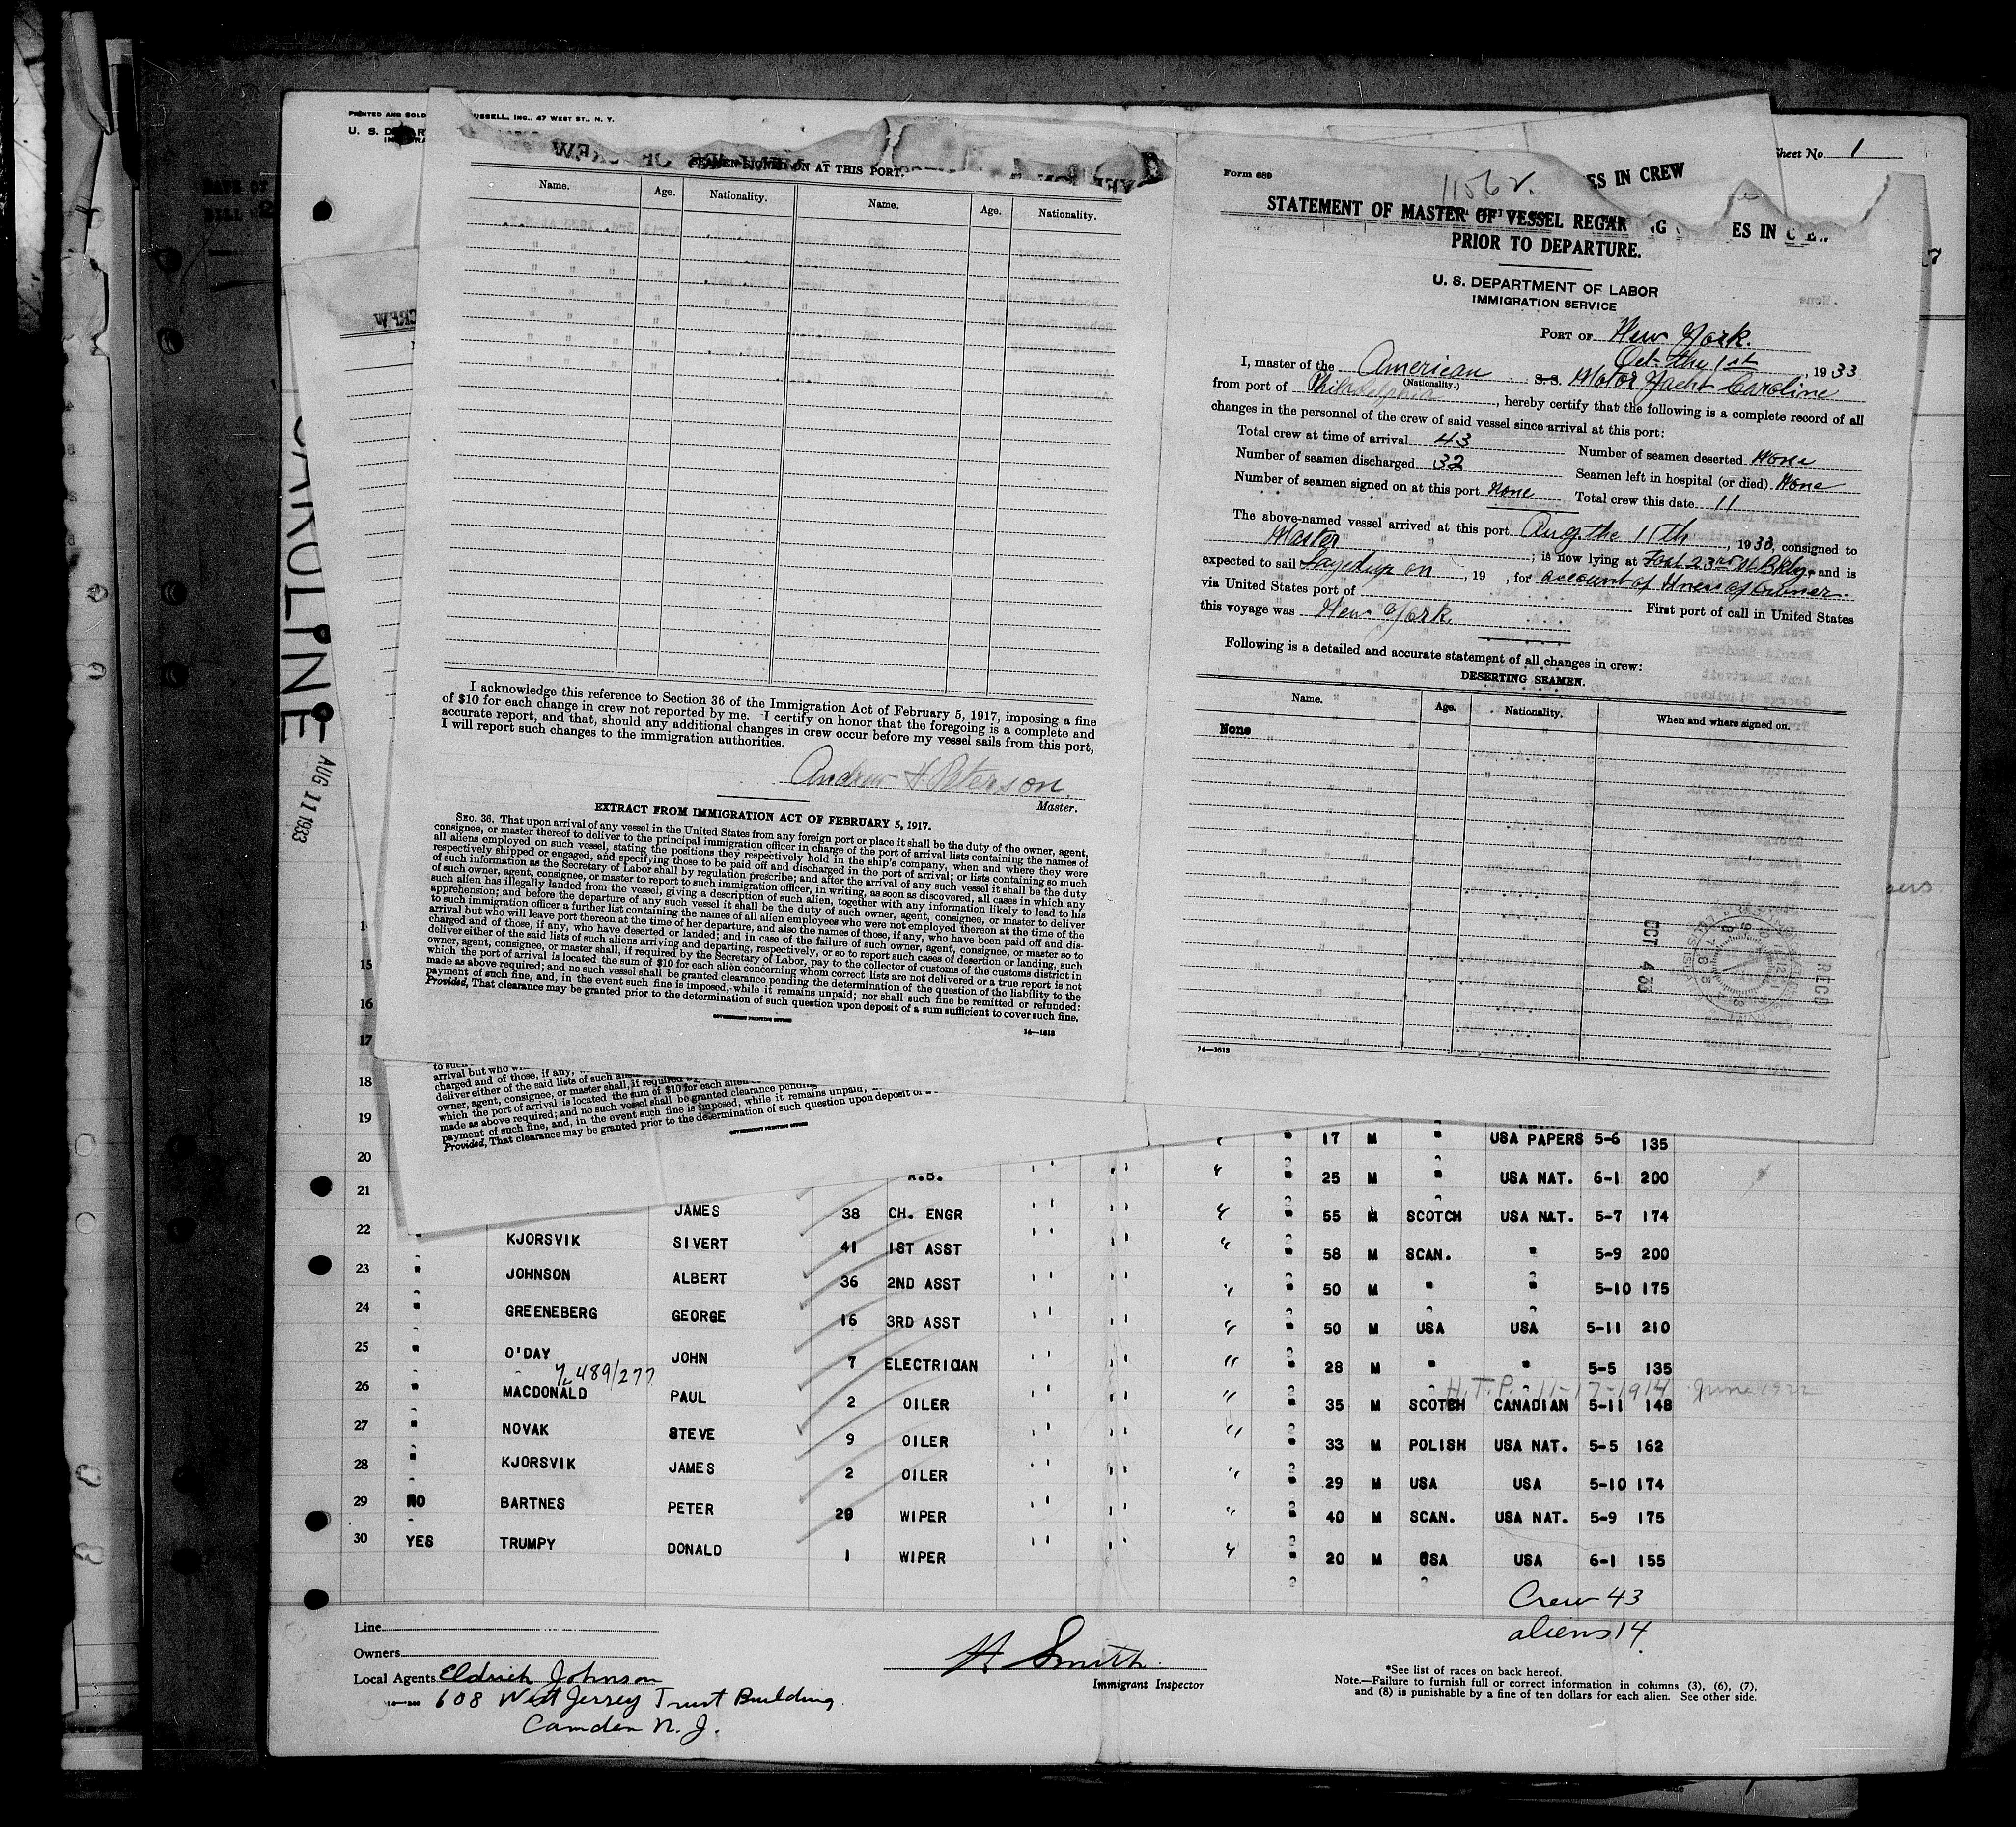 PRINTED AND SOLD
USSELL, INC., 47 WEST ST., N. Y.
U. S. DEPAR
Sheet No. 1
CAROLINE
AUG 11 1933
SEAMEN SIGNED ON AT THIS PORT.
Name. Age. Nationality. Name. Age. Nationality.
I acknowledge this reference to Section 36 of the Immigration Act of February 5, 1917, imposing a fine
of $10 for each change in crew not reported by me. I certify on honor that the foregoing is a complete and
accurate report, and that, should any additional changes in crew occur before my vessel sails from this port,
I will report such changes to the immigration authorities.
Andrew H Peterson.
Master.
EXTRACT FROM IMMIGRATION ACT OF FEBRUARY 5, 1917.
SEC. 36. That upon arrival of any vessel in the United States from any foreign port or place it shall be the duty of the owner, agent,
consignee, or master thereof to deliver to the principal immigration officer in charge of the port of arrival lists containing the names of
all aliens employed on such vessel, stating the positions they respectively hold in the ship's company, when and where they were
respectively shipped or engaged, and specifying those to be paid off and discharged in the port of arrival; or lists containing so much
of such information as the Secretary of Labor shall by regulation prescribe; and after the arrival of any such vessel it shall be the duty
of such owner, agent, consignee, or master to report to such immigration officer, in writing, as soon as discovered, all cases in which any
such alien has illegally landed from the vessel, giving a description of such alien, together with any information likely to lead to his
apprehension; and before the departure of any such vessel it shall be the duty of such owner, agent, consignee, or master to deliver
to such immigration officer a further list containing the names of all alien employees who were not employed thereon at the time of the
arrival but who will leave port thereon at the time of her departure, and also the names of those, if any, who have been paid off and dis-
charged and of those, if any, who have deserted or landed; and in case of the failure of such owner, agent, consignee, or master so to
deliver either of the said lists of such aliens arriving and departing, respectively, or so to report such cases of desertion or landing, such
owner, agent, consignee, or master shall, if required by the Secretary of Labor, pay to the collector of customs of the customs district in
which the port of arrival is located the sum of $10 for each alien concerning whom correct lists are not delivered or a true report is not
made as above required; and no such vessel shall be granted clearance pending the determination of the question of the liability to the
payment of such fine, and, in the event such fine is imposed, while it remains unpaid; nor shall such fine be remitted or refunded:
Provided, That clearance may be granted prior to the determination of such question upon deposit of a sum sufficient to cover such fine.
GOVERNMENT PRINTING OFFICE
14—1613
Form 689
ES IN CREW
STATEMENT OF MASTER OF VESSEL REGAR
PRIOR TO DEPARTURE.
U. S. DEPARTMENT OF LABOR
IMMIGRATION SERVICE
PORT OF New York.
Oct. the 1st, 1933
I, master of the American S.S. Motor Yacht Caroline
(Nationality.)
from port of Philadelphia, hereby certify that the following is a complete record of all
changes in the personnel of the crew of said vessel since arrival at this port:
Total crew at time of arrival 43
Number of seamen deserted None
Number of seamen discharged 32
Seamen left in hospital (or died) None
Number of seamen signed on at this port None
Total crew this date 11
The above-named vessel arrived at this port Aug. the 11th, 1933, consigned to
Master; is now lying at Foot 23rd St. Bkly, and is
expected to sail Layed up on, 19 , for account of Owner.
via United States port of
First port of call in United States
this voyage was New York.
Following is a detailed and accurate statement of all changes in crew:
DESERTING SEAMEN.
Name. Age. Nationality. When and where signed on.
None
OCT 4 33
REC'D
14—1613
arrival but who
charged and of those, if any,
deliver either of the said lists of such
owner, agent, consignee, or master shall, if required
which the port of arrival is located the sum of $10 for each alien
made as above required; and no such vessel shall be granted clearance pending
payment of such fine, and, in the event such fine is imposed, while it remains unpaid;
Provided, That clearance may be granted prior to the determination of such question upon deposit of
GOVERNMENT PRINTING OFFICE
15
16
17
18
19 17 M " USA PAPERS 5-6 135
20 25 M " USA NAT. 6-1 200
21 JAMES 38 CH. ENGR 55 M SCOTCH USA NAT. 5-7 174
22 " KJORSVIK SIVERT 41 1ST ASST 58 M SCAN. " 5-9 200
23 " JOHNSON ALBERT 36 2ND ASST 50 M " " 5-10 175
24 " GREENEBERG GEORGE 16 3RD ASST 50 M USA USA 5-11 210
25 " O'DAY JOHN 7 ELECTRICIAN 28 M " " 5-5 135
489/277
H.T.P. 11-17-1914 June 1922
26 " MACDONALD PAUL 2 OILER 35 M SCOTCH CANADIAN 5-11 148
27 " NOVAK STEVE 9 OILER 33 M POLISH USA NAT. 5-5 162
28 " KJORSVIK JAMES 2 OILER 29 M USA USA 5-10 174
29 NO BARTNES PETER 20 WIPER 40 M SCAN. USA NAT. 5-9 175
30 YES TRUMPY DONALD 1 WIPER 20 M USA USA 6-1 155
Crew 43
aliens 14
Line
Owners
Local Agents Eldrich Johnson
608 West Jersey Trust Building
Camden N. J.
H Smith
Immigrant Inspector
*See list of races on back hereof.
Note.—Failure to furnish full or correct information in columns (3), (6), (7),
and (8) is punishable by a fine of ten dollars for each alien. See other side.